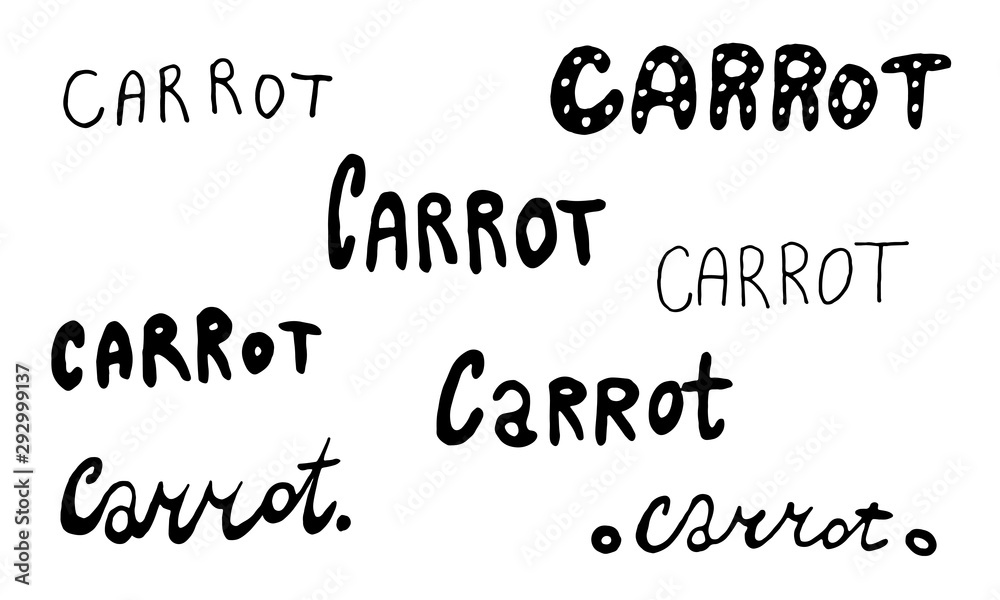 CARROT
CARROT
CARROT
CARROT
CARROT
Carrot
Carrot.
carrot
Adobe Stock | #292999137